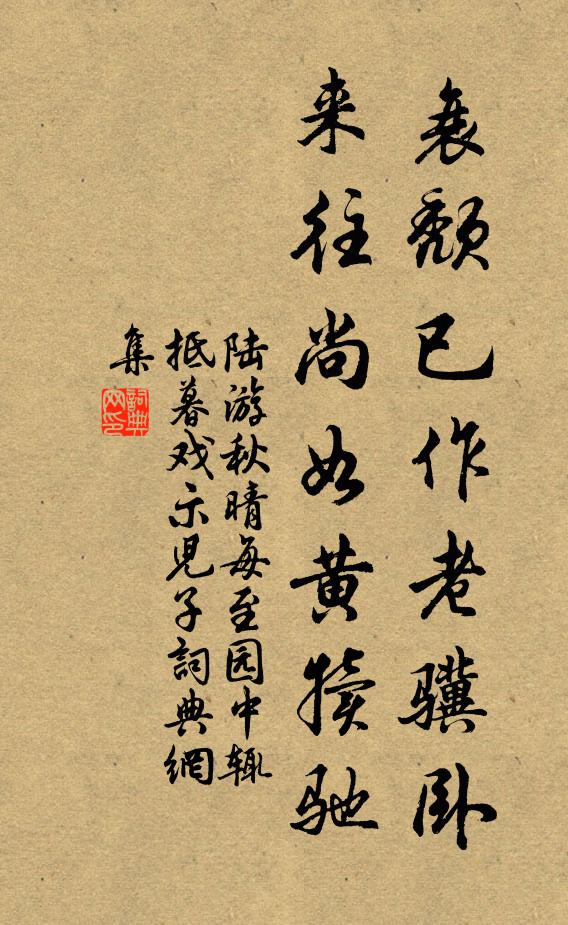 衰颓已作老骥卧
来往尚如黄犊驰
陆游秋晴每至园中辄
抵暮戏示児子詞典網
集
詞典
网印